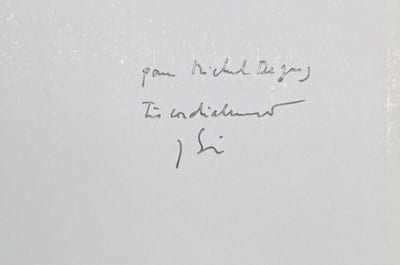 pour Michel Deguy
Très cordialement